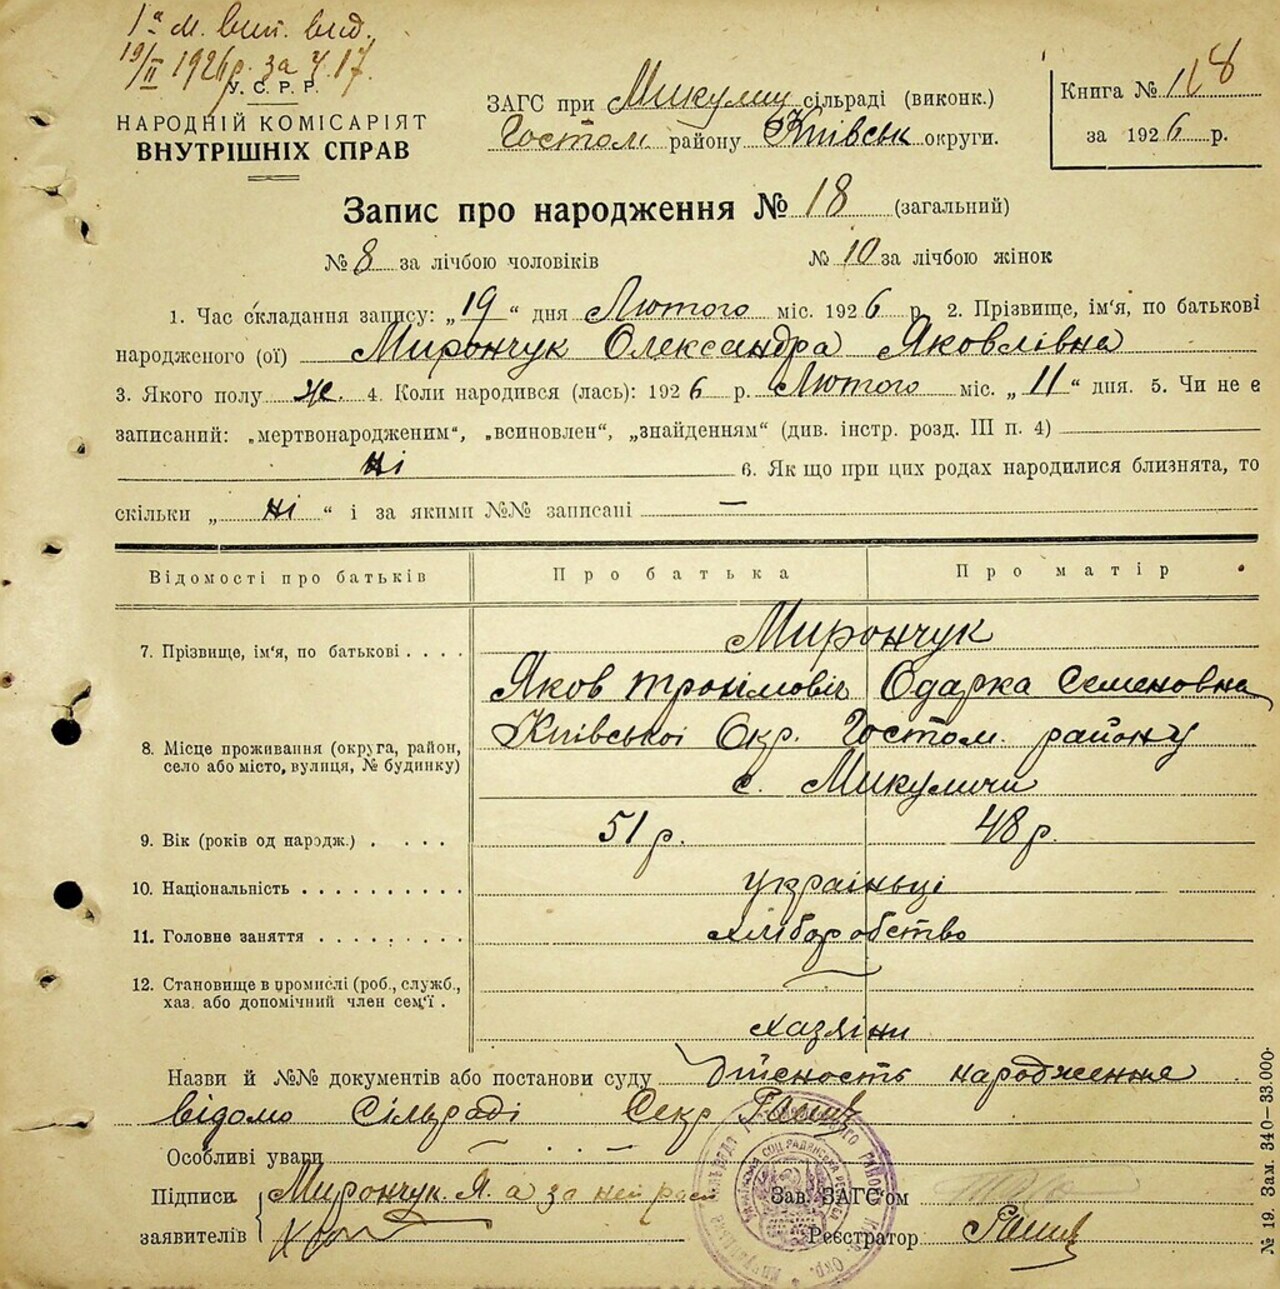 1ᵃ м. вип. вид.
19/II 1926 р. за ч. 17.
У. С. Р. Р.
НАРОДНІЙ КОМІСАРІЯТ
ВНУТРІШНІХ СПРАВ
ЗАГС при Микулиц сільраді (виконк.)
Гостом. району Київськ округи.
Книга № 1 18
за 1926 р.
Запис про народження № 18 (загальний)
№ 8 за лічбою чоловіків № 10 за лічбою жінок
1. Час складання запису: „19“ дня Лютого міс. 1926 р. 2. Прізвище, ім'я, по батькові
народженого (ої) Мирончук Олександра Яковлівна
3. Якого полу ж. 4. Коли народився (лась): 1926 р. Лютого міс. „11“ дня. 5. Чи не є
записаний: „мертвонародженим“, „всиновлен“, „знайденням“ (див. інстр. розд. III п. 4)
ні 6. Як що при цих родах народилися близнята, то
скільки „ні“ і за якими №№ записані —
Відомості про батьків Про батька Про матір
7. Прізвище, ім'я, по батькові . . . . Мирончук
Яков Трохімовіч Одарка Семеновна
8. Місце проживання (округа, район,
село або місто, вулиця, № будинку)
Київської Окр. Гостом. району
с. Микуличи
9. Вік (років од народж.) . . . . 51 р. 48 р.
10. Національність . . . . . . . . . . україньці
11. Головне заняття . . . . . . . . . хліборобство
12. Становище в промислі (роб., служб.,
хаз. або допомічний член сем'ї .
хазяїни
Назви й №№ документів або постанови суду дійсность народження
відомо Сільраді Секр
Особліві уваги — . —
Підписи Мирончук. Я. а за неї рос
заявителів
Зав. ЗАГС'ом
Реєстратор
№ 19. Зам. 340—33.000.